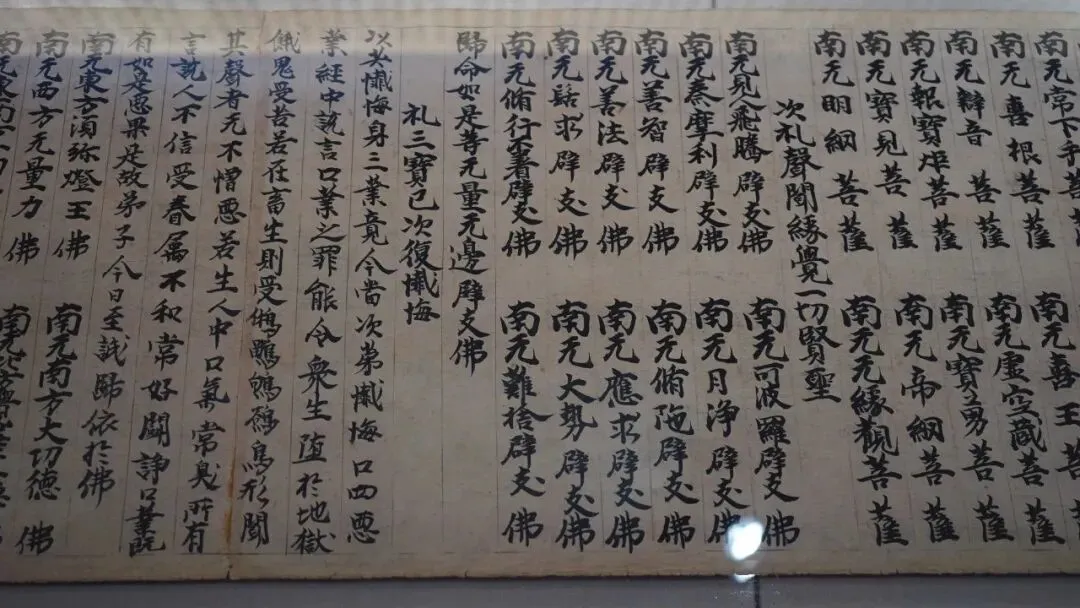 南无常下手菩 南无善王菩
南无喜根菩薩 南无虛空藏菩薩
南无辯音菩薩 南无寶勇菩薩
南无報寶炬菩薩 南无帝網菩薩
南无寶見菩薩 南无无緣觀菩薩
南无明網菩薩
次礼聲聞緣覺一切賢聖
南无見人飛騰辟支佛 南无可波羅辟支佛
南无秦摩利辟支佛 南无月淨辟支佛
南无善智辟支佛 南无脩陁辟支佛
南无善法辟支佛 南无應求辟支佛
南无髻求辟支佛 南无大勢辟支佛
南无脩行不著辟支佛 南无難捨辟支佛
歸命如是等无量无邊辟支佛
礼三寶已次復懺悔
以共懺悔身三業竟今當次苐懺悔口四惡
業經中說言口業之罪能令衆生墮於地獄
餓鬼受苦若在畜生則受鵂鶹鸜鵒鳥形聞
其聲者无不憎惡若生人中口氣常臭所有
言說人不信受眷属不和常好鬪諍口業旣
有如是惡果是故弟子今日至誠歸依於佛
南无東方須弥燈王佛 南无南方大切德佛
南无西方无量力佛